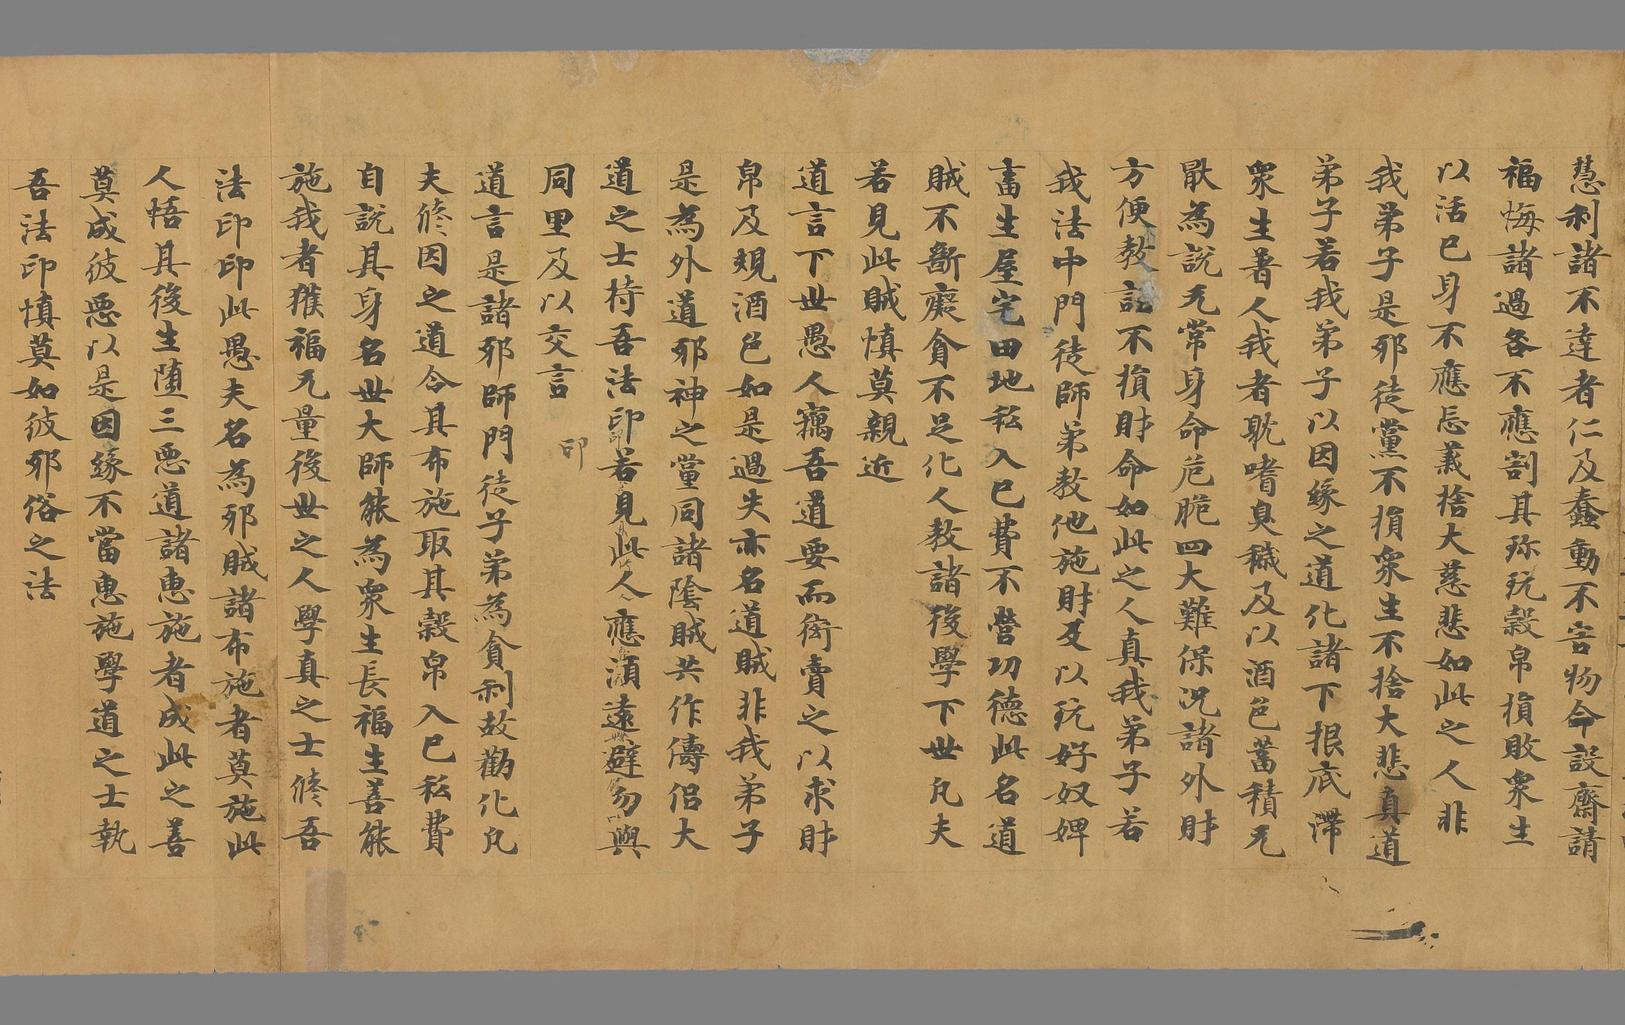 慧利諸不達者仁及蠢動不害物命設齋請
福悔諸過各不應割其珎玩穀帛損敗衆生
以活已身不應忘義捨大慈悲如此之人非
我弟子是邪徒黨不損衆生不捨大悲真道
弟子若我弟子以因緣之道化諸下根底滯
衆生著人我者耽嗜臭穢及以酒色蓄積无
猒為說无常身命危脆四大難保况諸外財
方便教誑不損財命如此之人真我弟子若
我法中門徒師弟教他施財及以玩好奴婢
畜生屋宅田地私入已費不營功德此名道
賊不斷癡貪不足化人教諸後學下世凡夫
若見此賊慎莫親近
道言下世愚人竊吾道要而衒賣之以求財
帛及覓酒色如是過失亦名道賊非我弟子
是為外道邪神之黨同諸陰賊共作儔侣大
道之士持吾法印若見此人應湏遠避勿與
同里及以交言
印
道言是諸邪師門徒子弟為貪利故勸化凡
夫修因之道令其布施取其穀帛入已私費
自說其身名世大師能為衆生長福生善能
施我者獲福无量後世之人學真之士修吾
法印印此愚夫名為邪賊諸布施者莫施此
人悟其後生墮三惡道諸惠施者成此之善
莫成彼惡以是因緣不當惠施學道之士執
吾法印慎莫如彼邪俗之法